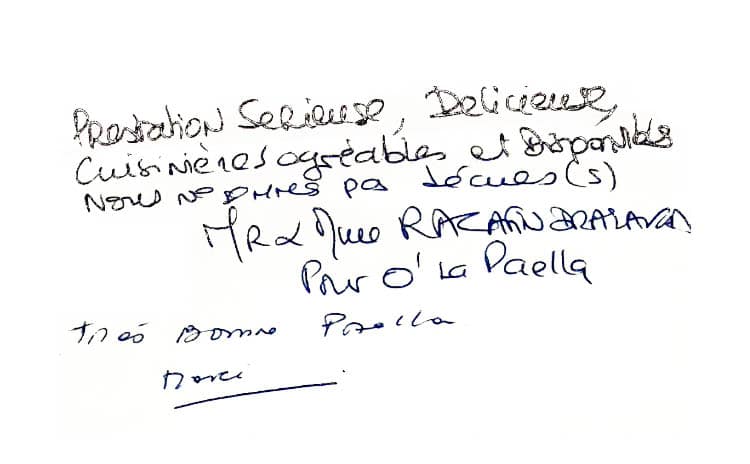 Prestation Serieuse, Delicieuse,
Cuisinières agréables et Disponibles
Nous ne sommes pas décues(s)
MR & Mme
Pour O' La Paella
Très Bonne Paella
Merci